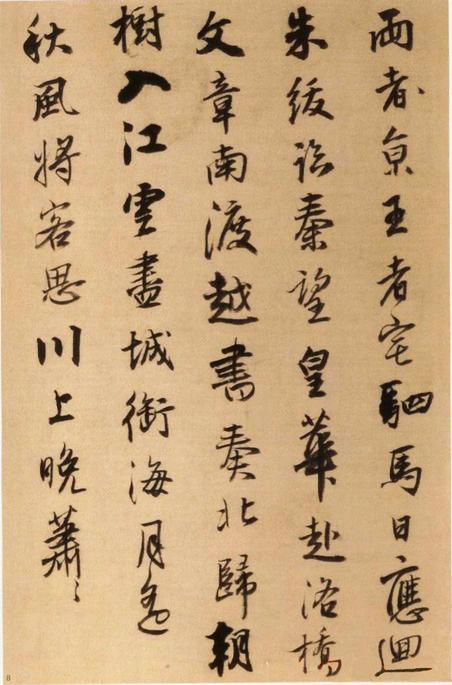 両者京王者宅駟馬日〻應迴
朱紱詣秦望皇華赴洛橋
文章南渡越書奏北歸朝
樹入江雲盡城銜海月遙
秋風將客思川上晚蕭〻
8